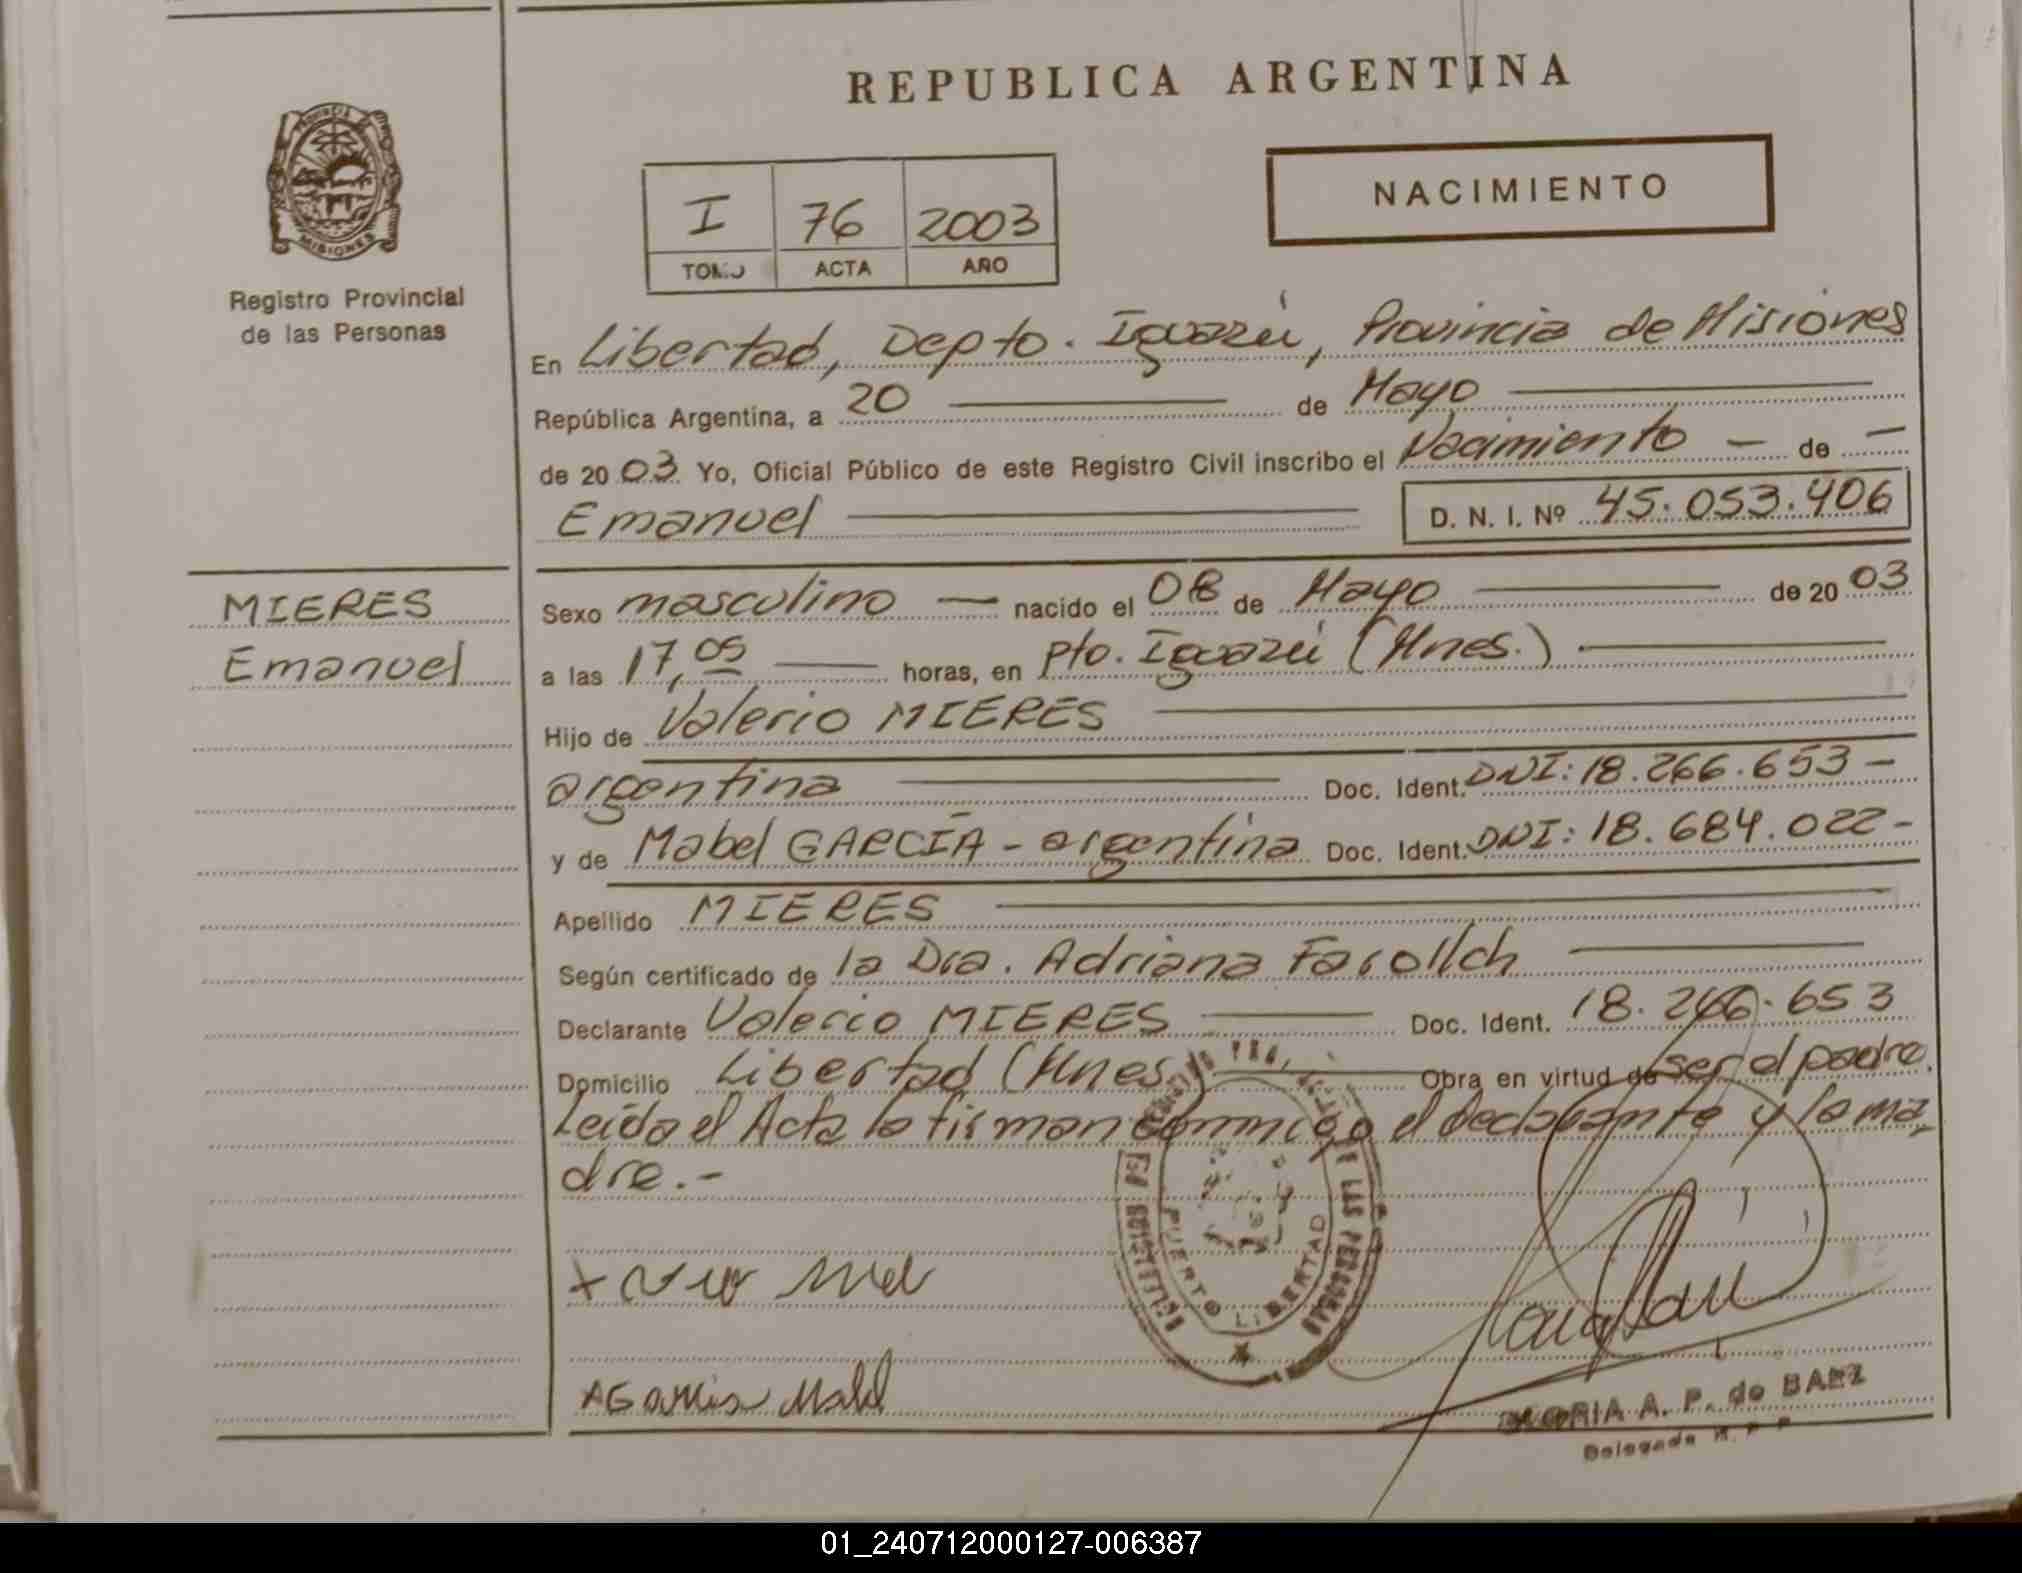 REPUBLICA ARGENTINA
PROVINCIA DE
MISIONES
Registro Provincial
de las Personas
I 76 2003
TOMO ACTA AÑO
NACIMIENTO
En Libertad, Depto. Iguazú, Provincia de Misiones
República Argentina, a 20 de Mayo
de 2003 Yo, Oficial Público de este Registro Civil inscribo el Nacimiento - de -
Emanuel D. N. I. Nº 45.053.406
MIERES
Emanuel
Sexo masculino — nacido el 08 de Mayo de 2003
a las 17,05 horas, en Pto. Iguazú (Mnes.)
Hijo de Valerio MIERES
argentina Doc. Ident. DNI: 18.266.653 -
y de Mabel GARCÍA - argentina Doc. Ident. DNI: 18.684.022 -
Apellido MIERES
Según certificado de la Dra. Adriana
Declarante Valerio MIERES Doc. Ident. 18.266.653
Domicilio Libertad (Mnes.) Obra en virtud de ser el padre.
Leída el Acta la firman conmigo el declarante y la ma
dre.-
DE LAS PERSONAS
PUERTO LIBERTAD
Garcia Mabel
GLORIA A. P. de BAEZ
Delegada R. P. P
01_240712000127-006387